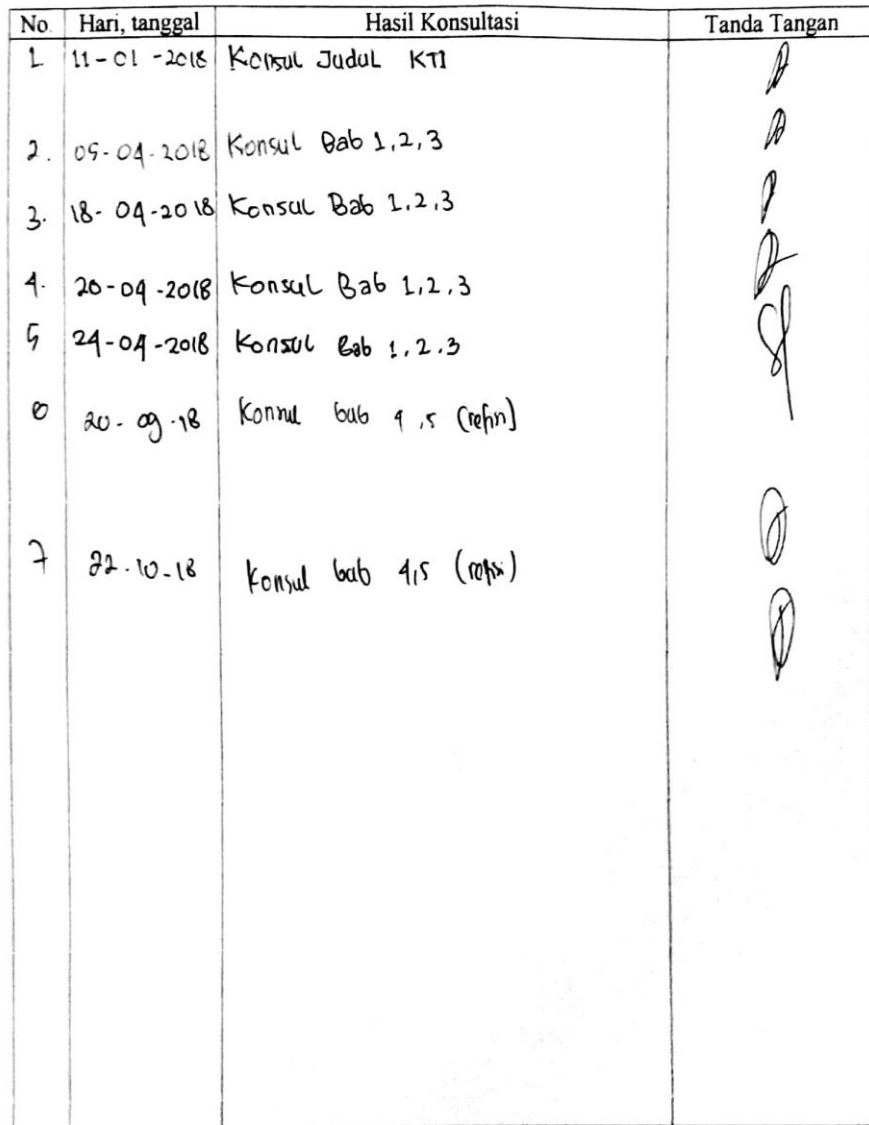 No. Hari, tanggal Hasil Konsultasi Tanda Tangan
1 11-01-2018 Konsul Judul KTI
2. 05-04-2018 Konsul Bab 1,2,3
3. 18-04-2018 Konsul Bab 1,2,3
4. 20-04-2018 Konsul Bab 1,2,3
5 24-04-2018 Konsul Bab 1,2,3
20-09-18 Konsul bab 4,5 (refisi)
7 22-10-18 Konsul bab 4,5 (refisi)